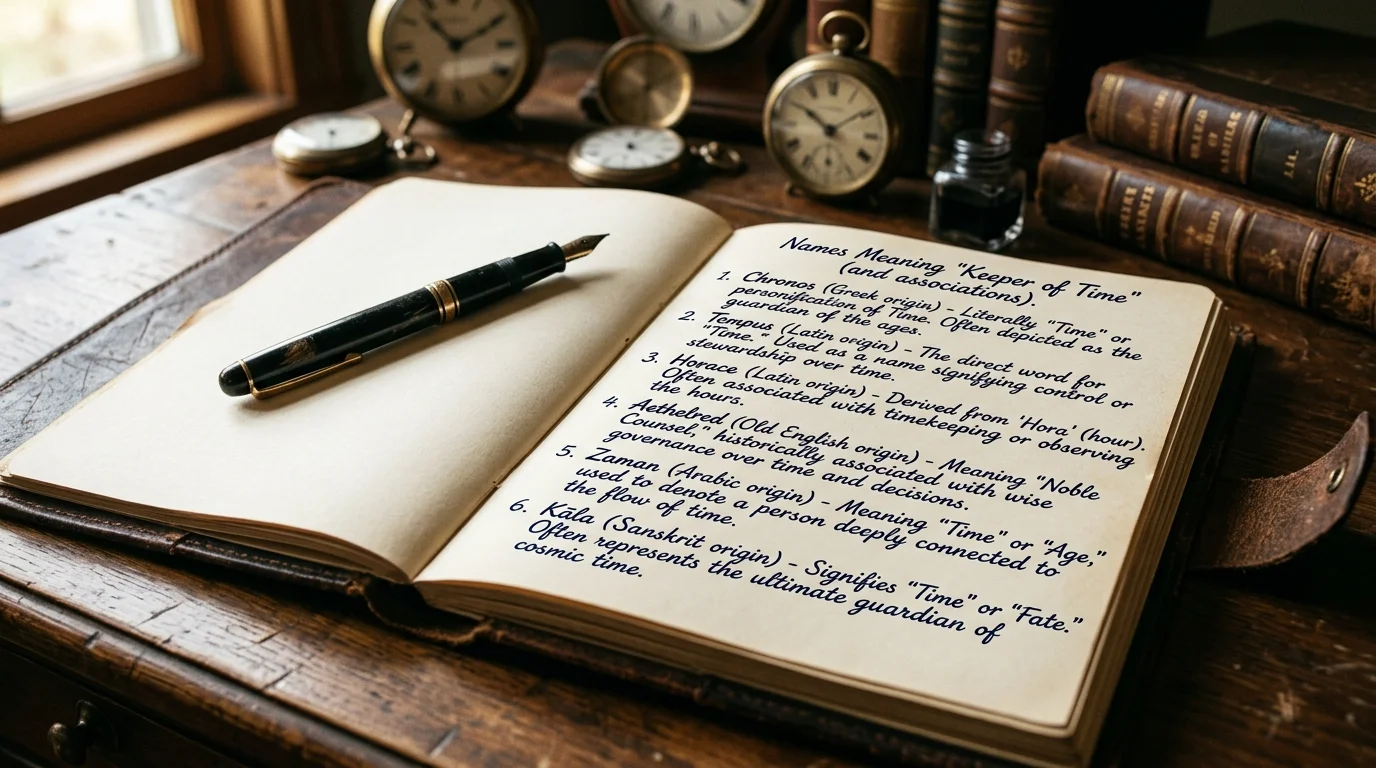 Names Meaning "Keeper of Time"
(and associations).
1. Chronos (Greek origin) - Literally "Time" or
personification of Time. Often depicted as the
guardian of the ages.
2. Tempus (Latin origin) - The direct word for
"Time." Used as a name signifying control or
stewardship over time.
3. Horace (Latin origin) - Derived from 'Hora' (hour).
Often associated with timekeeping or observing
the hours.
4. Aethelred (Old English origin) - Meaning "Noble
Counsel," historically associated with wise
governance over time and decisions.
5. Zaman (Arabic origin) - Meaning "Time" or "Age,"
used to denote a person deeply connected to
the flow of time.
6. Kāla (Sanskrit origin) - Signifies "Time" or "Fate."
Often represents the ultimate guardian of
cosmic time.